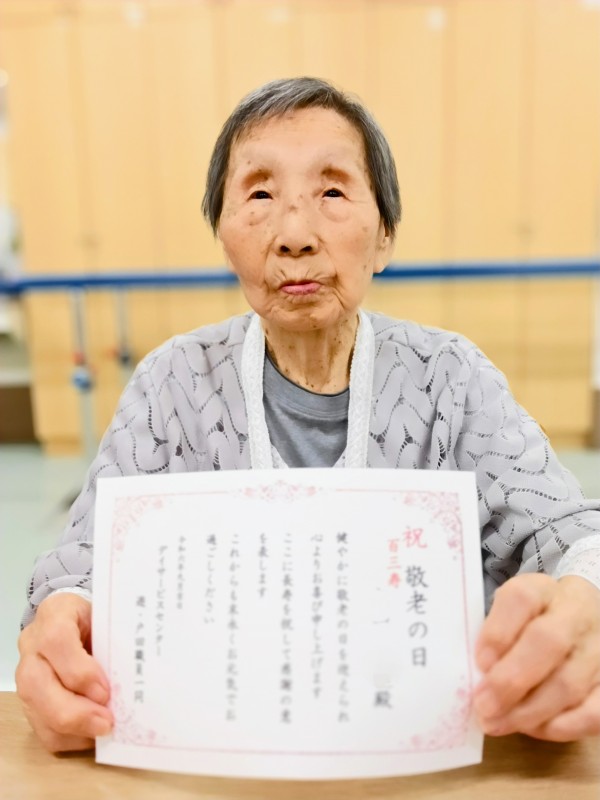 祝 敬老の日
百三寿
一 殿
健やかに敬老の日を迎えられ
心よりお喜び申し上げます
ここに長寿を祝して感謝の意
を表します
これからも末永くお元気でお
過ごしください
デイサービスセンター
遊・戸田職員一同